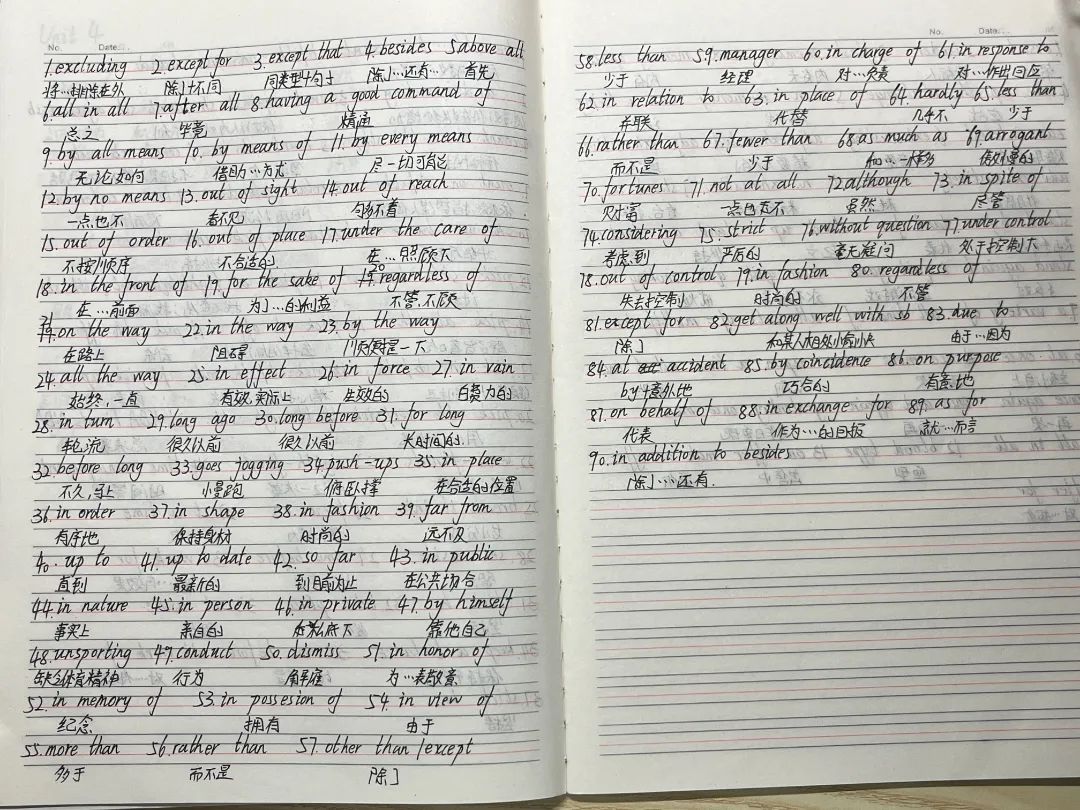 No. Date.
1.excluding 2.except for 3.except that 4.besides 5.above all
将…排除在外 除了不同 同类型句子 除了…还有… 首先
6.all in all 7.after all 8.having a good command of
总之 毕竟 精通
9.by all means 10.by means of 11.by every means
无论如何 借助…方式 尽一切可能
12.by no means 13.out of sight 14.out of reach
一点也不 看不见 够不着
15.out of order 16.out of place 17.under the care of
不按顺序 不合适的 在…照顾下
18.in the front of 19.for the sake of 20 regardless of
在…前面 为了…的利益 不管,不顾
21 on the way 22.in the way 23.by the way
在路上 阻碍 顺便提一下
24.all the way 25.in effect 26.in force 27.in vain
始终,一直 有效,实际上 生效的 白费力的
28.in turn 29.long ago 30.long before 31.for long
轮流 很久以前 很久以前 长时间的
32.before long 33.goes jogging 34.push-ups 35.in place
不久,马上 小慢跑 俯卧撑 在合适的位置
36.in order 37.in shape 38.in fashion 39.far from
有序地 保持身材 时尚的 远不及
40.up to 41.up to date 42.so far 43.in public
直到 最新的 到目前为止 在公共场合
44.in nature 45.in person 46.in private 47.by himself
事实上 亲自的 私底下 靠他自己
48.unsporting 49.conduct 50.dismiss 51.in honor of
缺乏体育精神 行为 解雇 为…表敬意
52.in memory of 53.in possesion of 54.in view of
纪念 拥有 由于
55.more than 56.rather than 57.other than/except
多于 而不是 除了
No. Date.
58.less than 59.manager 60.in charge of 61.in response to
少于 经理 对…负责 对…作出回应
62.in relation to 63.in place of 64.hardly 65.less than
有关联 代替 几乎不 少于
66.rather than 67.fewer than 68.as much as 69.arrogant
而不是 少于 和…一样多 傲慢的
70.fortunes 71.not at all 72.although 73.in spite of
财富 一点也不 虽然 尽管
74.considering 75.strict 76.without question 77.under control
考虑到 严厉的 毫无疑问 处于控制下
78.out of control 79.in fashion 80.regardless of
失去控制 时尚的 不管
81.except for 82.get along well with sb 83.due to
除了 和某人相处 由于…因为
84.at accident 85.by coincidence 86.on purpose
by 意外地 巧合的 有意地
87.on behalf of 88.in exchange for 89.as for
代表 作为…的回报 就…而言
90.in addition to besides
除了…还有.